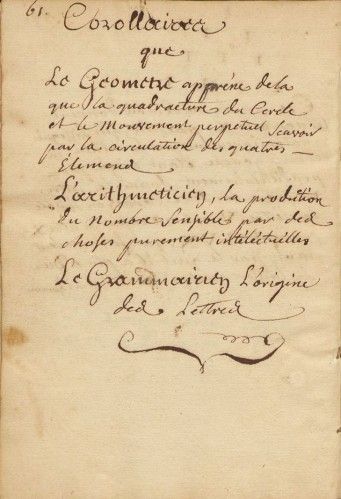 61.
Corollaires
que
Le Geometre apprene de la
que la quadracture du Cercle
et le Mouvement perpetuel Scavoir
par la circulation des quatres
Elemens
L'arithmeticien, la production
du Nombre Sensibles par des
choses purement intélectuelles
Le Grammairien L'origine
des Lettres